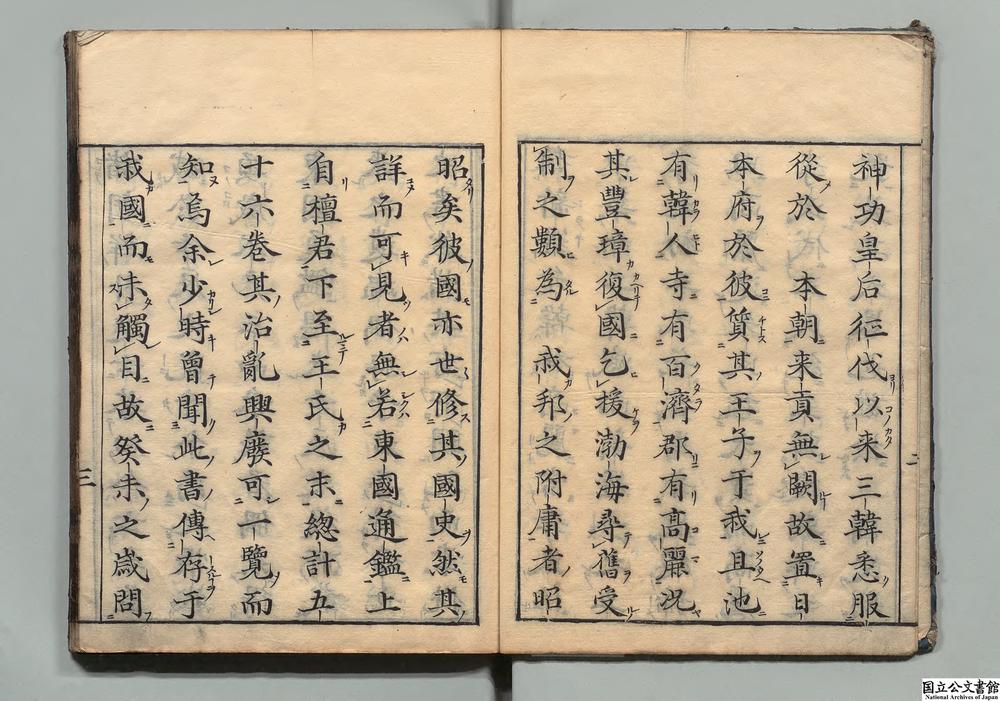 神功皇后征伐以来三韓悉服
從於本朝来貢無闕故置日
本府於彼質其王子于我且池
有韓人寺有百濟郡有高麗況
其豐璋復國乞援渤海尋舊受
制之類為我邦之附庸者昭
二
昭矣彼國亦世修其國史然其
詳而可見者無若東國通鑑上
自檀君下至王氏之末總計五
十六卷其治亂興廢可一覽而
知焉余少時曾聞此書傳存于
我國而未觸目故癸未之歳問
三
国立公文書館
National Archives of Japan